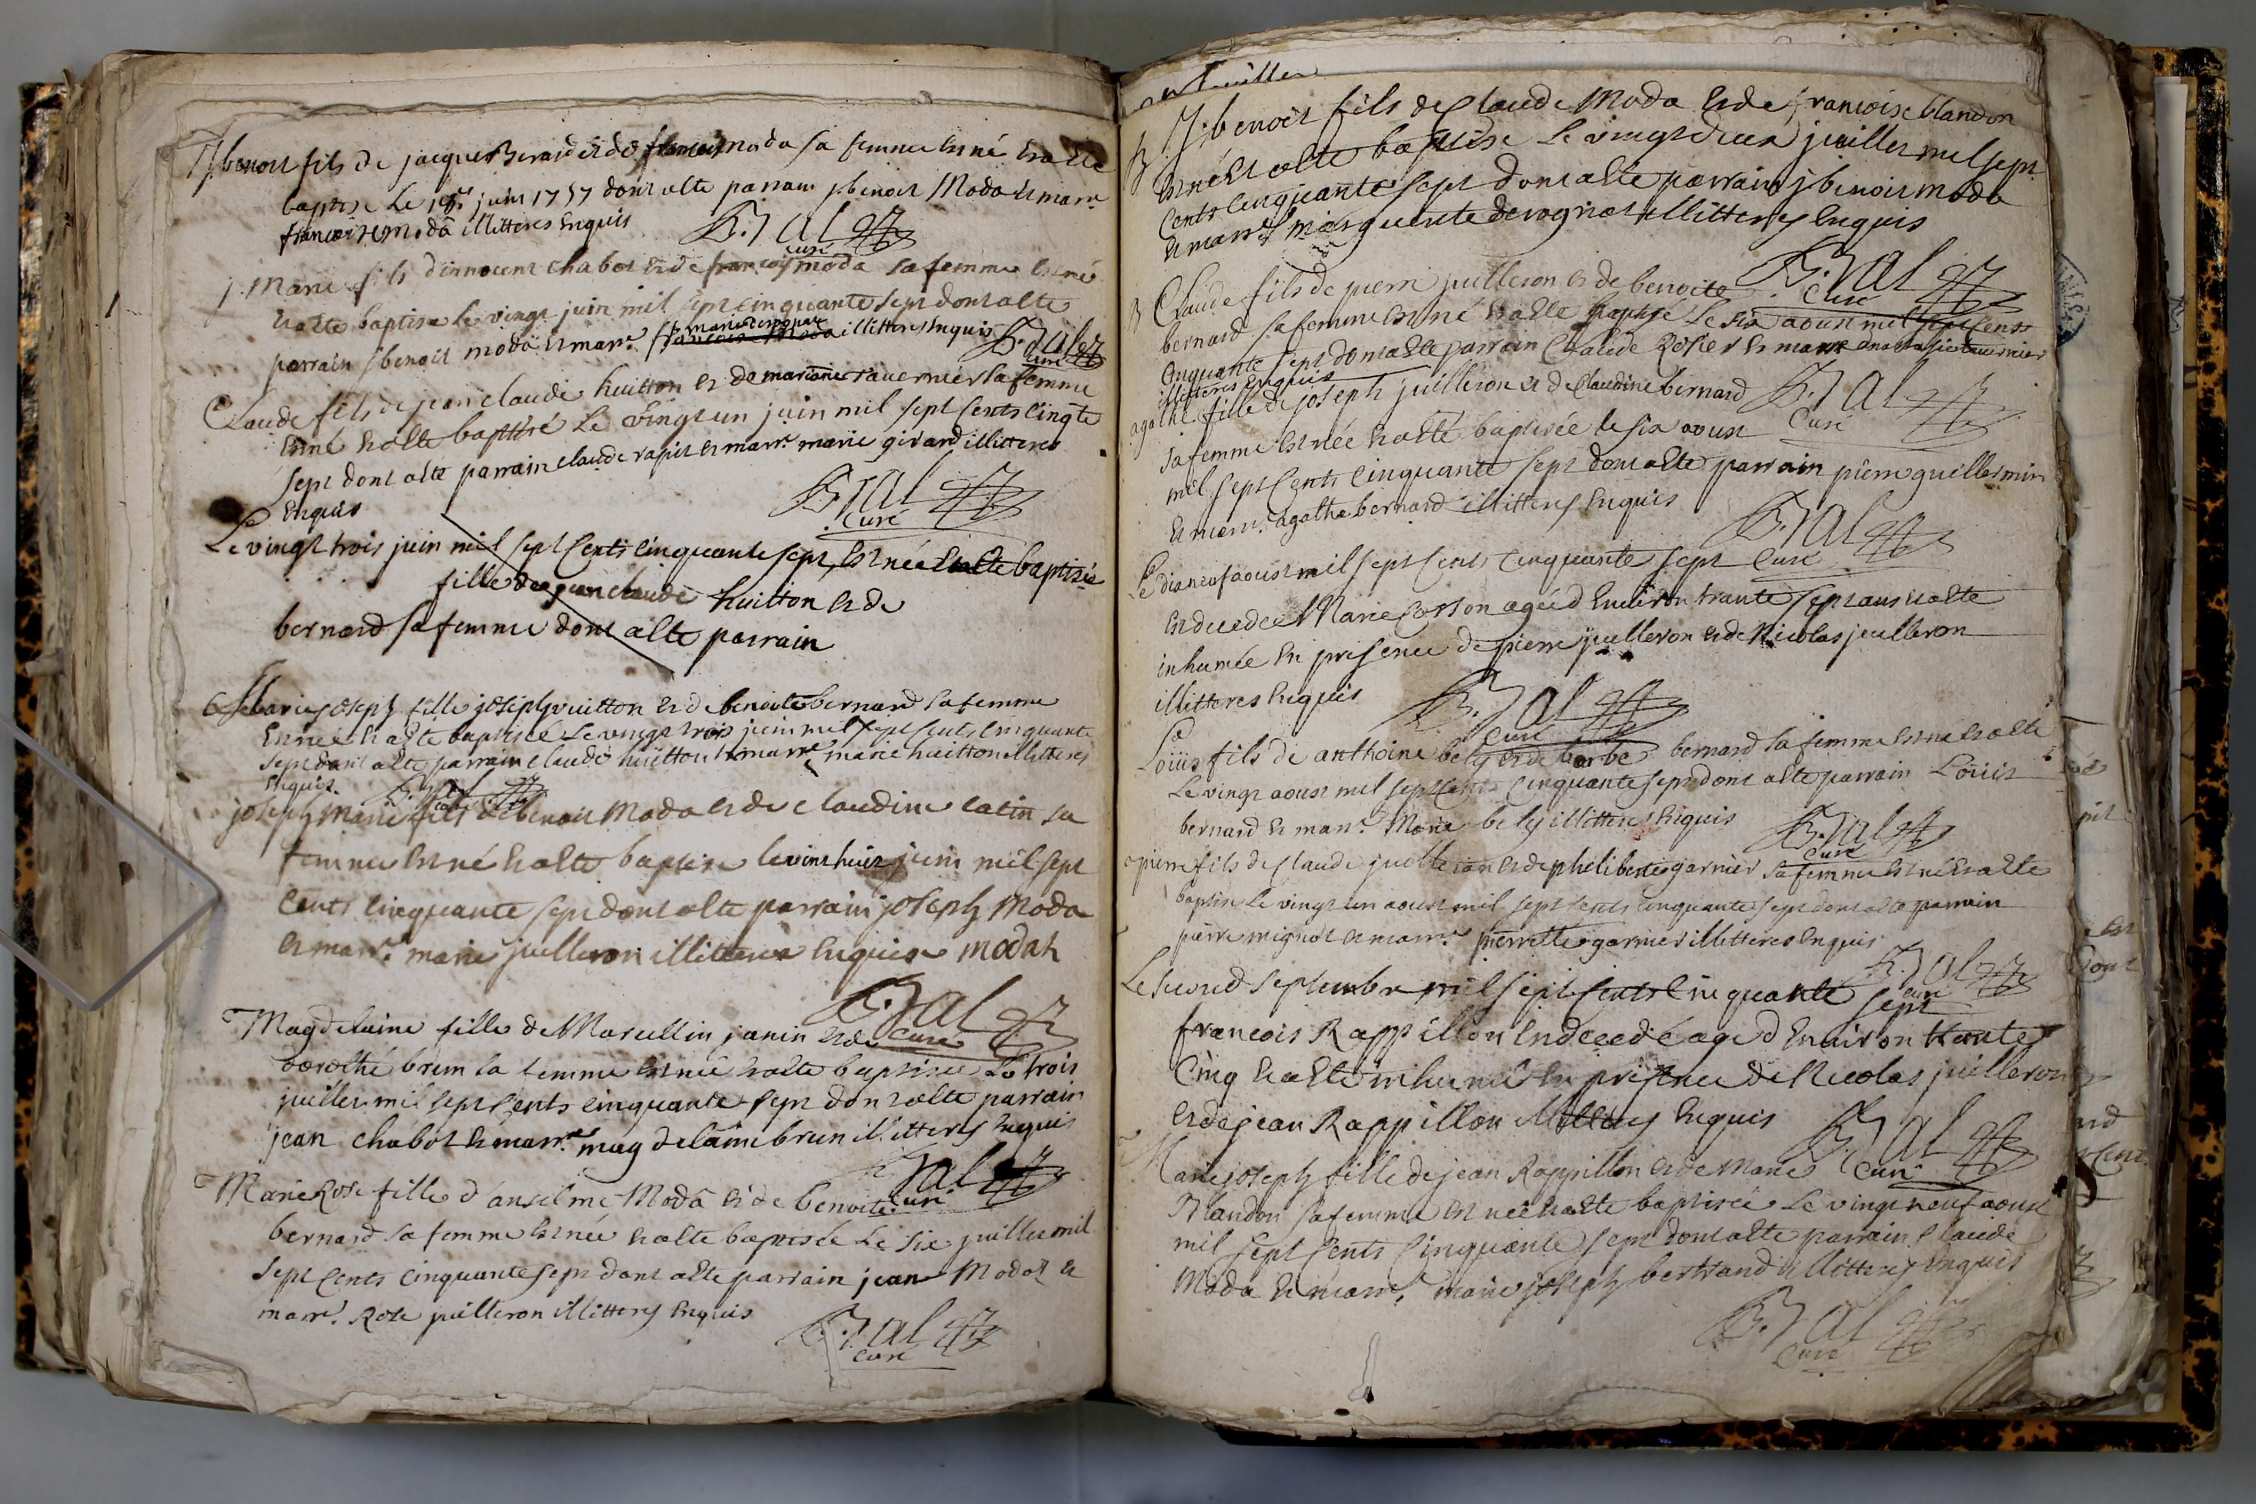 J benoit fils de jacque Berard et de francoise moda sa femme est né et a été
baptise Le juin 1757 dont a été parrain j benoit Moda et marr.e
francoise moda illitteres enquis
B. Jal
curé
j. Marie fils d'innocent chabot et de francoise moda sa femme est né
et a été baptise Le vingt juin mil sept cinquante sept dont a été
parrain j benoit moda et marr.e illitteres enquis B. Jal
curé
Claude fils de jean claude huitton et de marianne tavernier sa femme
est né et a été baptisé Le vingt un juin mil sept Cents Cinq.te
sept dont a été parrain claude rapit et marr.e marie girard illitteres
enquis
B. Jal
Curé
Le vingt trois juin mil sept Cents Cinquante sept est née et a été baptisée
fille de jean claude huitton et de
bernard sa femme dont a été parrain
Marie joseph fille joseph vuitton et de benoite bernard sa femme
est née et a été baptisée Le vingt trois juin mil sept Cents Cinquante
sept dont a été parrain claude huitton et marr.e marie huitton illitteres
enquis. B. Jal
curé
joseph Marie fils de benoit Moda et de claudine catin sa
femme est né et a été baptise le vint huit juin mil sept
Cents Cinquante sept dont a été parrain joseph Moda
et marr.e marie juilleron illitteres enquis modah
B. Jal
Curé
Magdelaine fille de Marcellin janin et de
dorothé brun sa femme est née et a été baptisée Le trois
juillet mil sept Cents Cinquante sept dont a été parrain
jean chabot et marr.e magdelaine brun illitteres enquis
B. Jal
Curé
Marie Rose fille d'anselme Moda et de benoite
bernard sa femme est née et a été baptisée Le six juillet mil
sept Cents Cinquante sept dont a été parrain jean Modat et
marr.e Rose juilleron illitteres enquis
B. Jal
Curé
J. benoit fils de Claude Moda et de francoise blandon
est né et a été baptise Le vingt deux juillet mil sept
Cents Cinquante sept dont a été parrain j benoit moda
et marr.e marguerite derognat illitteres enquis
B. Jal
Curé
Claude fils de pierre juilleron et de benoite
bernard sa femme est né et a été baptisé Le six aoust mil sept Cents
Cinquante sept dont a été parrain Claude Rosier et marr.e
illitteres enquis
agathe fille de joseph juilleron et de Claudine bernard B. Jal
sa femme est née et a été baptisée le six aoust Curé
mil sept Cents Cinquante sept dont a été parrain pierre guillermin
et marr.e agathe bernard illitteres enquis
B. Jal
Le dix neuf aoust mil sept Cents Cinquante sept Curé
est decedée Marie Cotton agée d'environ trante sept ans et a été
inhumée en presence de pierre juilleron et de Nicolas juilleron
illitteres enquis B. Jal
Curé
Loüis fils de anthoine bely et de barbe bernard sa femme est né et a été
Le vingt aoust mil sept Cents Cinquante sept dont a été parrain Loüis
bernard et marr.e Marie bely illitteres enquis B. Jal
Curé
pierre fils de Claude juilleron et de pheliberte garnier sa femme est né et a été
baptise Le vingt un aoust mil sept Cents Cinquante sept dont a été parrain
pierre mignot et marr.e pierrette garnier illitteres enquis
B. Jal
Curé
Le second septembre mil sept Cents Cinquante sept
francois Rappillon est decedé agé d'environ trente
Cinq et a été inhumé en presence de Nicolas juilleron
et de jean Rappillon illitteres enquis B. Jal
Curé
Marie joseph fille de jean Rappillon et de Marie
Blandon sa femme est née et a été baptisée Le vingt neuf aoust
mil sept Cents Cinquante sept dont a été parrain Claude
Moda et marr.e marie joseph bertrand illitteres enquis
B. Jal
Curé